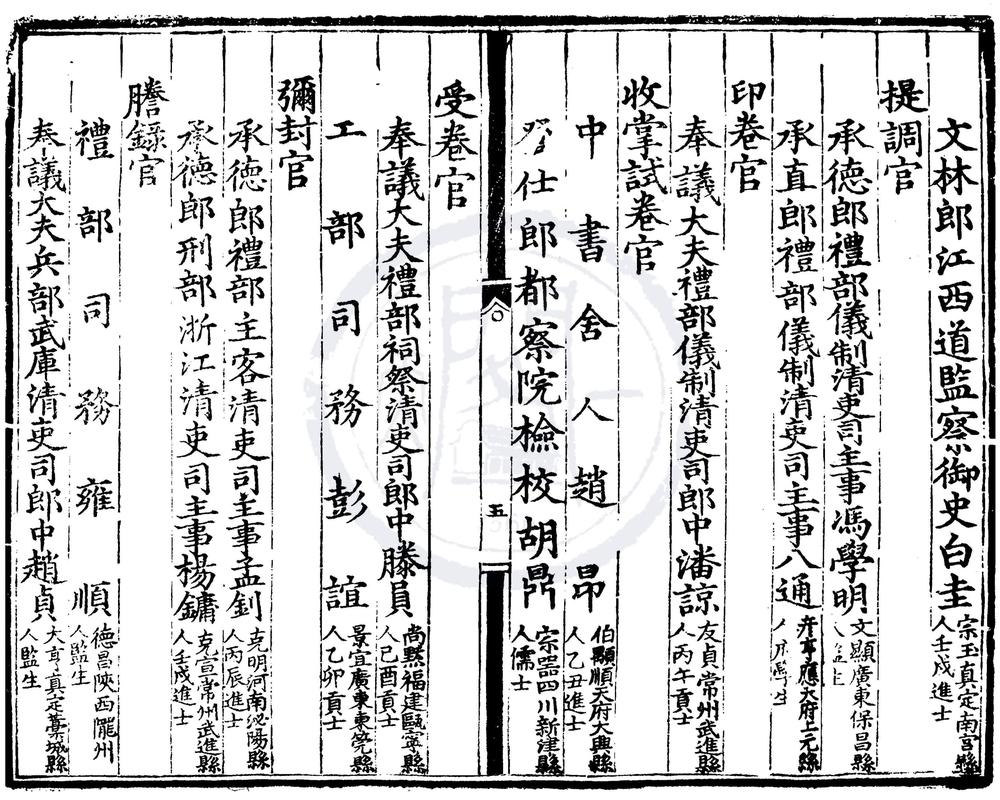 文林郎江西道監察御史白圭宗玉真定南宫縣人壬戌進士
提調官
承德郎禮部儀制清吏司主事馮學明文顯廣東保昌縣人監生
承直郎禮部儀制清吏司主事八通應天府上元縣人
印卷官
奉議大夫禮部儀制清吏司郎中潘諒友貞常州武進縣人丙午貢士
收掌試卷官
中書舍人趙昂伯顒順天府大興縣人乙丑進士
登仕郎都察院檢校胡鼎宗器四川新津縣人儒士
五
受卷官
奉議大夫禮部祠祭清吏司郎中滕員尚黙福建甌寧縣人己酉貢士
工部司務彭誼景宜廣東東筦縣人乙卯貢士
彌封官
承德郎禮部主客清吏司主事孟釗克明河南泌陽縣人丙辰進士
承德郎刑部浙江清吏司主事楊鏞克宣常州武進縣人壬戌進士
謄錄官
禮部司務雍順德昌陝西隴州人監生
奉議大夫兵部武庫清吏司郎中趙貞大亨真定藁城縣人監生